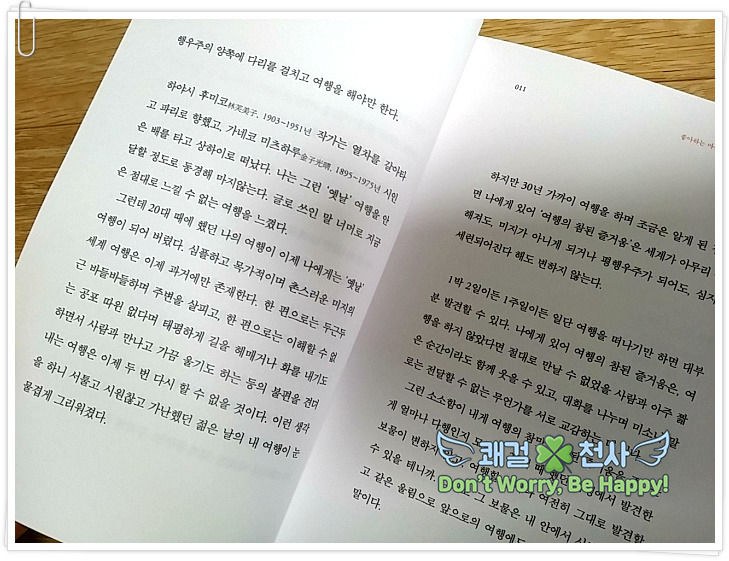 행우주의 양쪽에 다리를 걸치고 여행을 해야만 한다.
하야시 후미코林芙美子, 1903~1951년 작가는 열차를 갈아타
고 파리로 향했고, 가네코 미츠하루金子光晴, 1895~1975년 시인
은 배를 타고 상하이로 떠났다. 나는 그런 '옛날' 여행을 안
달할 정도로 동경해 마지않는다. 글로 쓰인 말 너머로 지금
은 절대로 느낄 수 없는 여행을 느꼈다.
그런데 20대 때에 했던 나의 여행이 이제 나에게는 '옛날'
여행이 되어 버렸다. 심플하고 목가적이며 촌스러운 미지의
세계 여행은 이제 과거에만 존재한다. 한 편으로는 두근두
근 바들바들하며 주변을 살피고, 한 편으로는 이해할 수 없
는 공포 따윈 없다며 태평하게 길을 헤매거나 화를 내기도
하면서 사람과 만나고 가끔 울기도 하는 등의 불편을 견뎌
내는 여행은 이제 두 번 다시 할 수 없을 것이다. 이런 생각
을 하니 서툴고 시원찮고 가난했던 젊은 날의 내 여행이 눈
물겹게 그리워졌다.
011
좋아하는 마
하지만 30년 가까이 여행을 하며 조금은 알게 된
면 나에게 있어 '여행의 참된 즐거움'은 세계가 아무리
해져도, 미지가 아니게 되거나 평행우주가 되어도, 심지
세련되어진다 해도 변하지 않는다.
1박 2일이든 1주일이든 일단 여행을 떠나기만 하면 대부
분 발견할 수 있다. 나에게 있어 여행의 참된 즐거움은, 여
행을 하지 않았다면 절대로 만날 수 없었을 사람과 아주 짧
은 순간이라도 함께 웃을 수 있고, 대화를 나누며 미소나 말
로는 전달할 수 없는 무언가를 서로 교감하는
그런 소소함이 내게 여행의 참
게 얼마나 다행인지 때 했던 에서 발견한
보물이 변하지 여행할 여전히 그대로 발견할
수 있을 테니까. 그 보물은 내 안에서
고 같은 울림으로 앞으로의 여행에도
말이다.
쾌걸 천사
Don't Worry, Be Happy!